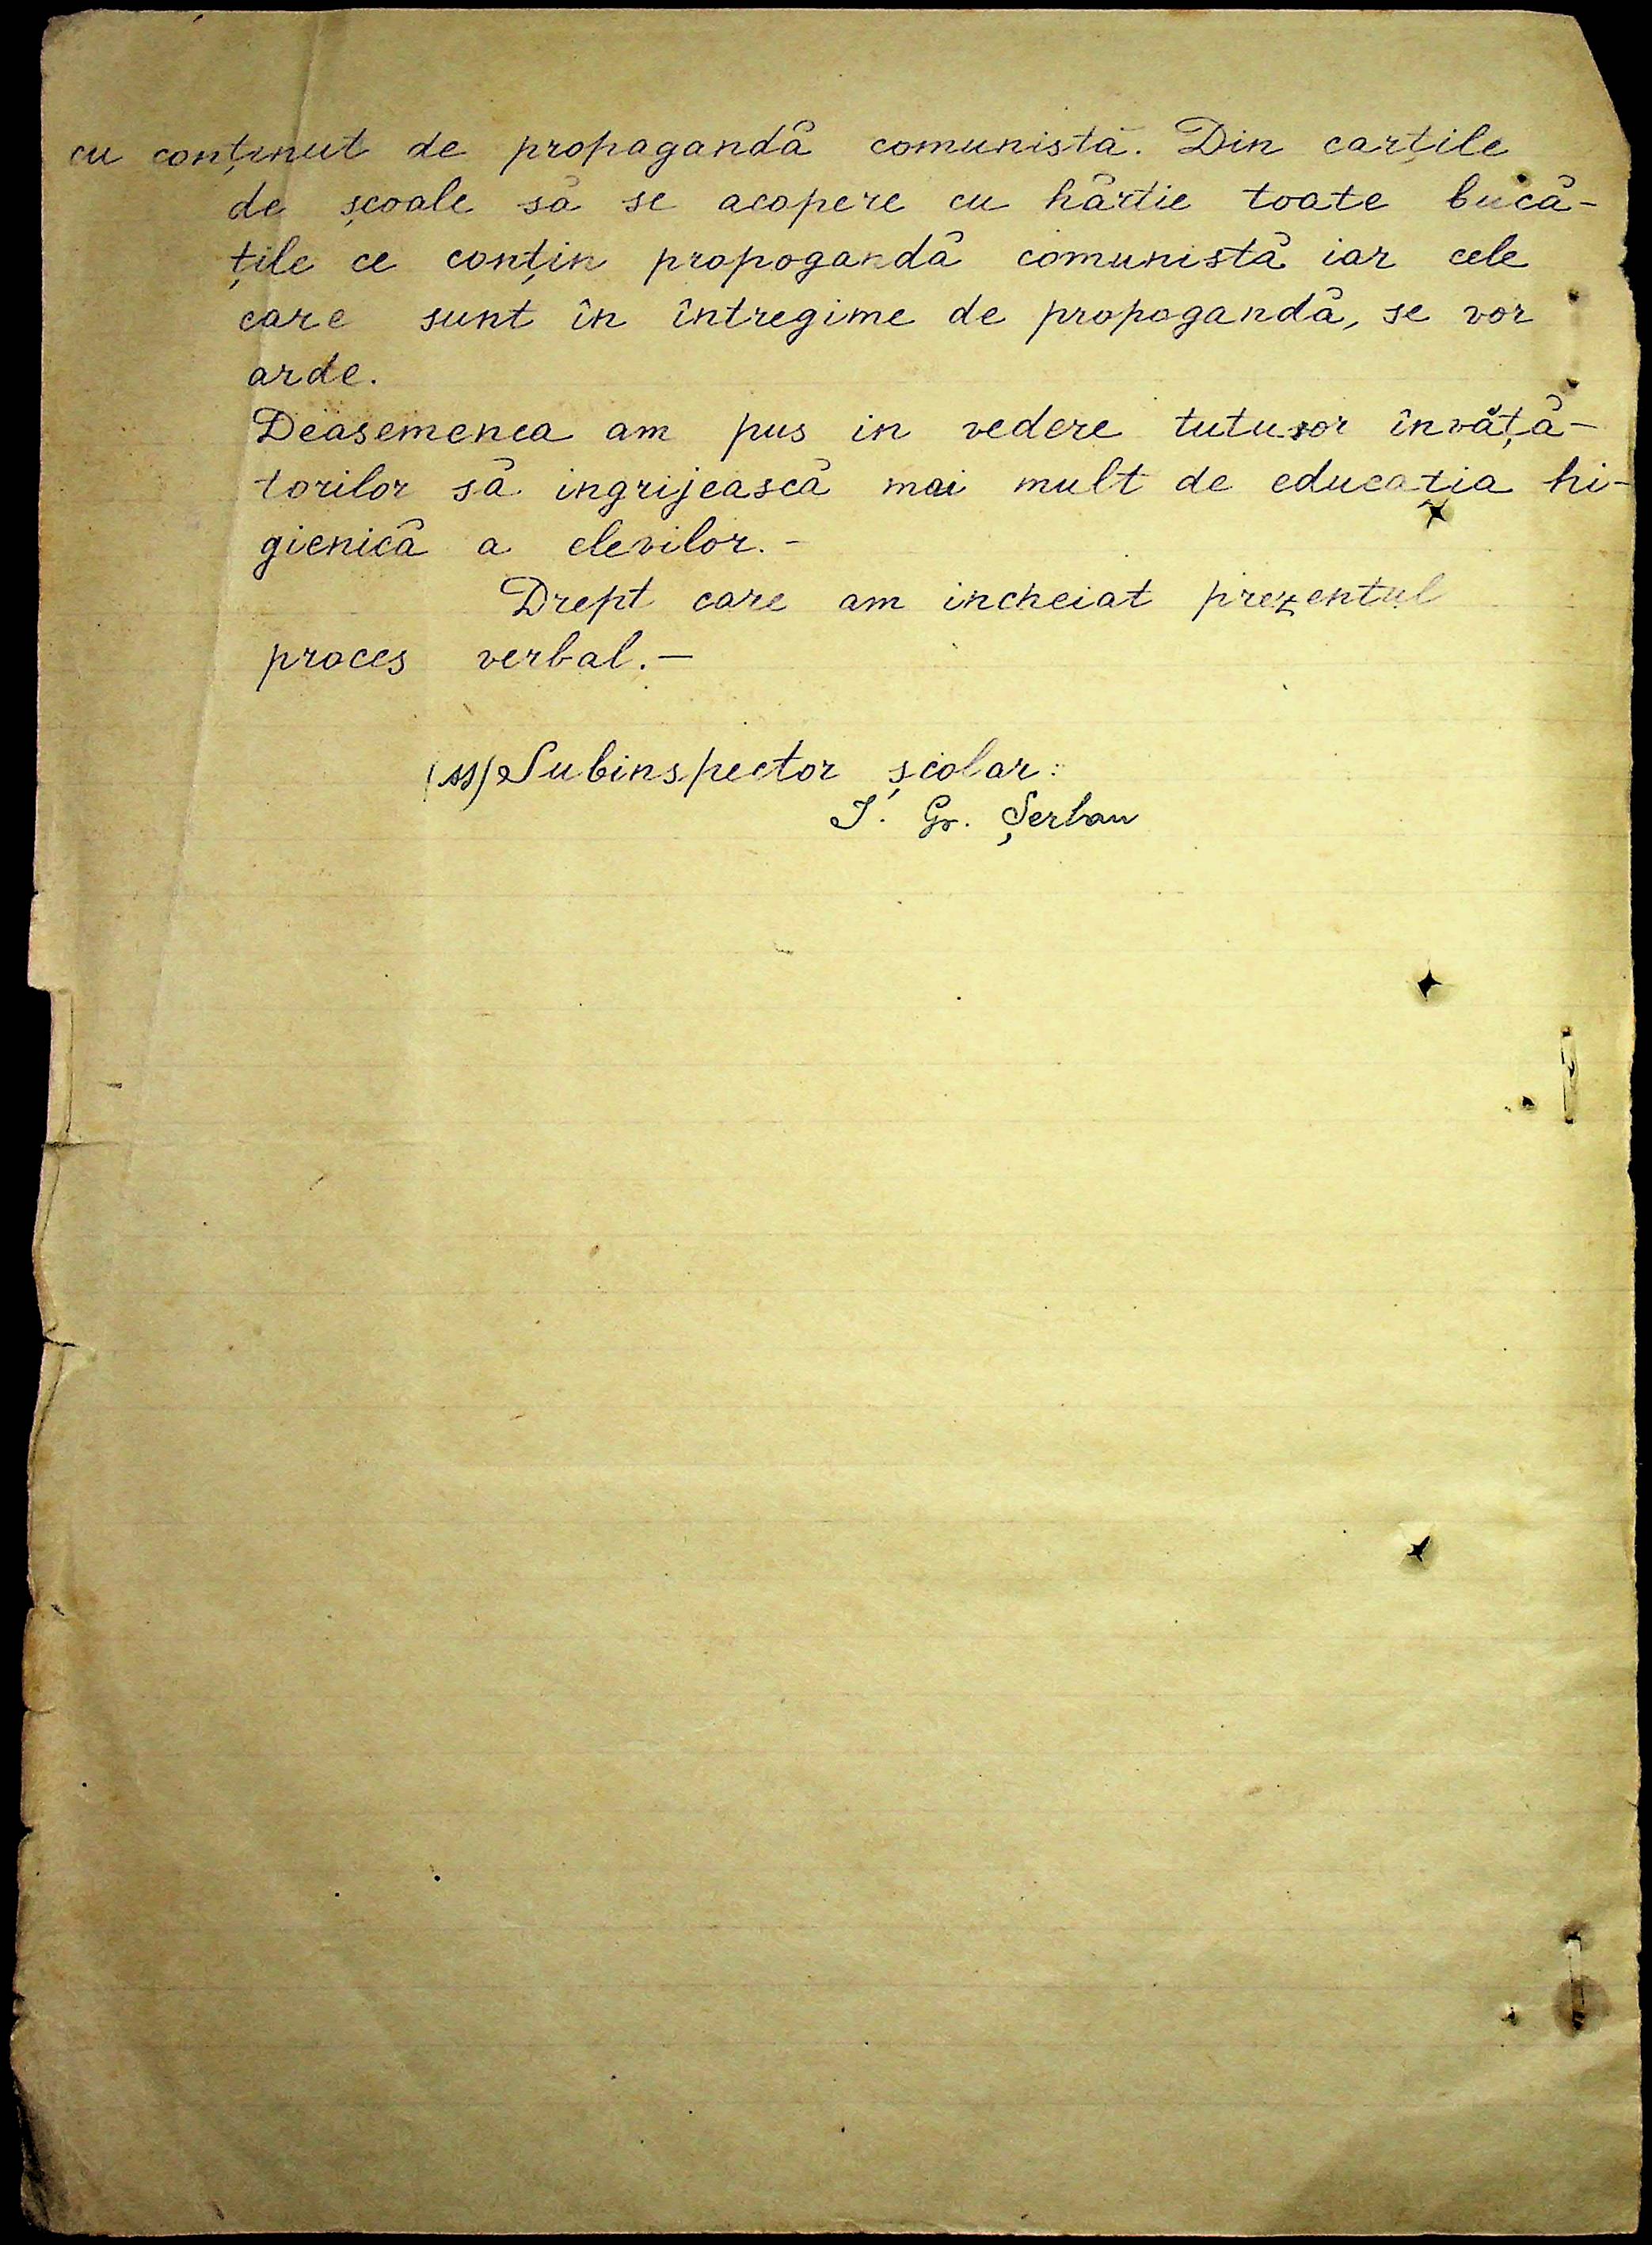 cu conținut de propagandă comunistă. Din carțile
de școale să se acopere cu hârtie toate bucă-
țile ce conțin propogandă comunistă iar cele
care sunt în întregime de propogandă, se vor
arde.
Deasemenea am pus in vedere tuturor învăță-
torilor să ingrijească mai mult de educația hi-
gienică a elevilor.-
Drept care am incheiat prezentul
proces verbal.-
(ss) Subinspector școlar:
I. Gr. Șerban